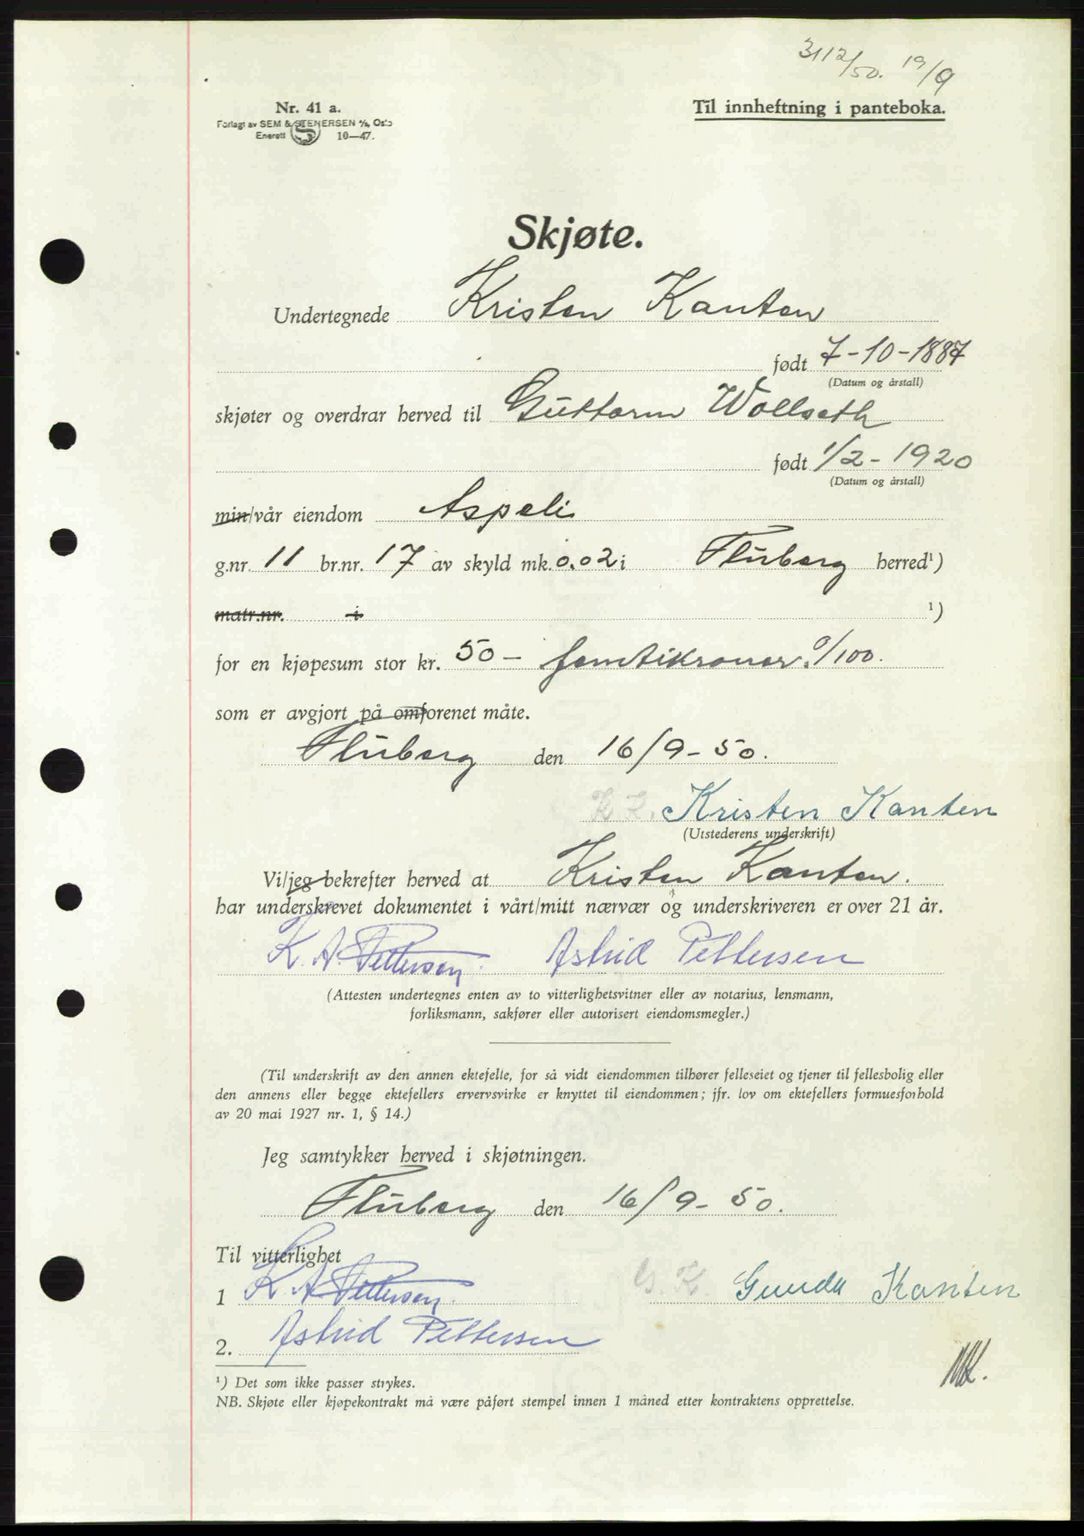 3112/50. 19/9
Nr. 41 a.
Forlagt av SEM & STENERSEN A/S, Oslo
Enerett S 10—47.
Til innheftning i panteboka.
Skjøte.
Undertegnede Kristen Kanten
født 7-10-1887
(Datum og årstall)
skjøter og overdrar herved til Guttorm Wollseth
født 1/2-1920
(Datum og årstall)
min/vår eiendom Aspeli
g.nr. 11 br.nr. 17 av skyld mk. 0,02 i Fluberg herred¹)
matr.nr. i ¹)
for en kjøpesum stor kr. 50- femtikroner 0/100.
som er avgjort på omforenet måte.
Fluberg den 16/9-50.
K. K. Kristen Kanten
(Utstederens underskrift)
Vi/jeg bekrefter herved at Kristen Kanten.
har underskrevet dokumentet i vårt/mitt nærvær og underskriveren er over 21 år.
K. A. Pettersen. Astrid Pettersen
(Attesten undertegnes enten av to vitterlighetsvitner eller av notarius, lensmann,
forliksmann, sakfører eller autorisert eiendomsmegler.)
(Til underskrift av den annen ektefelle, for så vidt eiendommen tilhører felleseiet og tjener til fellesbolig eller
den annens eller begge ektefellers ervervsvirke er knyttet til eiendommen; jfr. lov om ektefellers formuesforhold
av 20 mai 1927 nr. 1, § 14.)
Jeg samtykker herved i skjøtningen.
Fluberg den 16/9-50.
Til vitterlighet
1 K. A. Pettersen. G. K. Gunda Kanten
2. Astrid Pettersen
¹) Det som ikke passer strykes.
NB. Skjøte eller kjøpekontrakt må være påført stempel innen 1 måned etter kontraktens opprettelse.